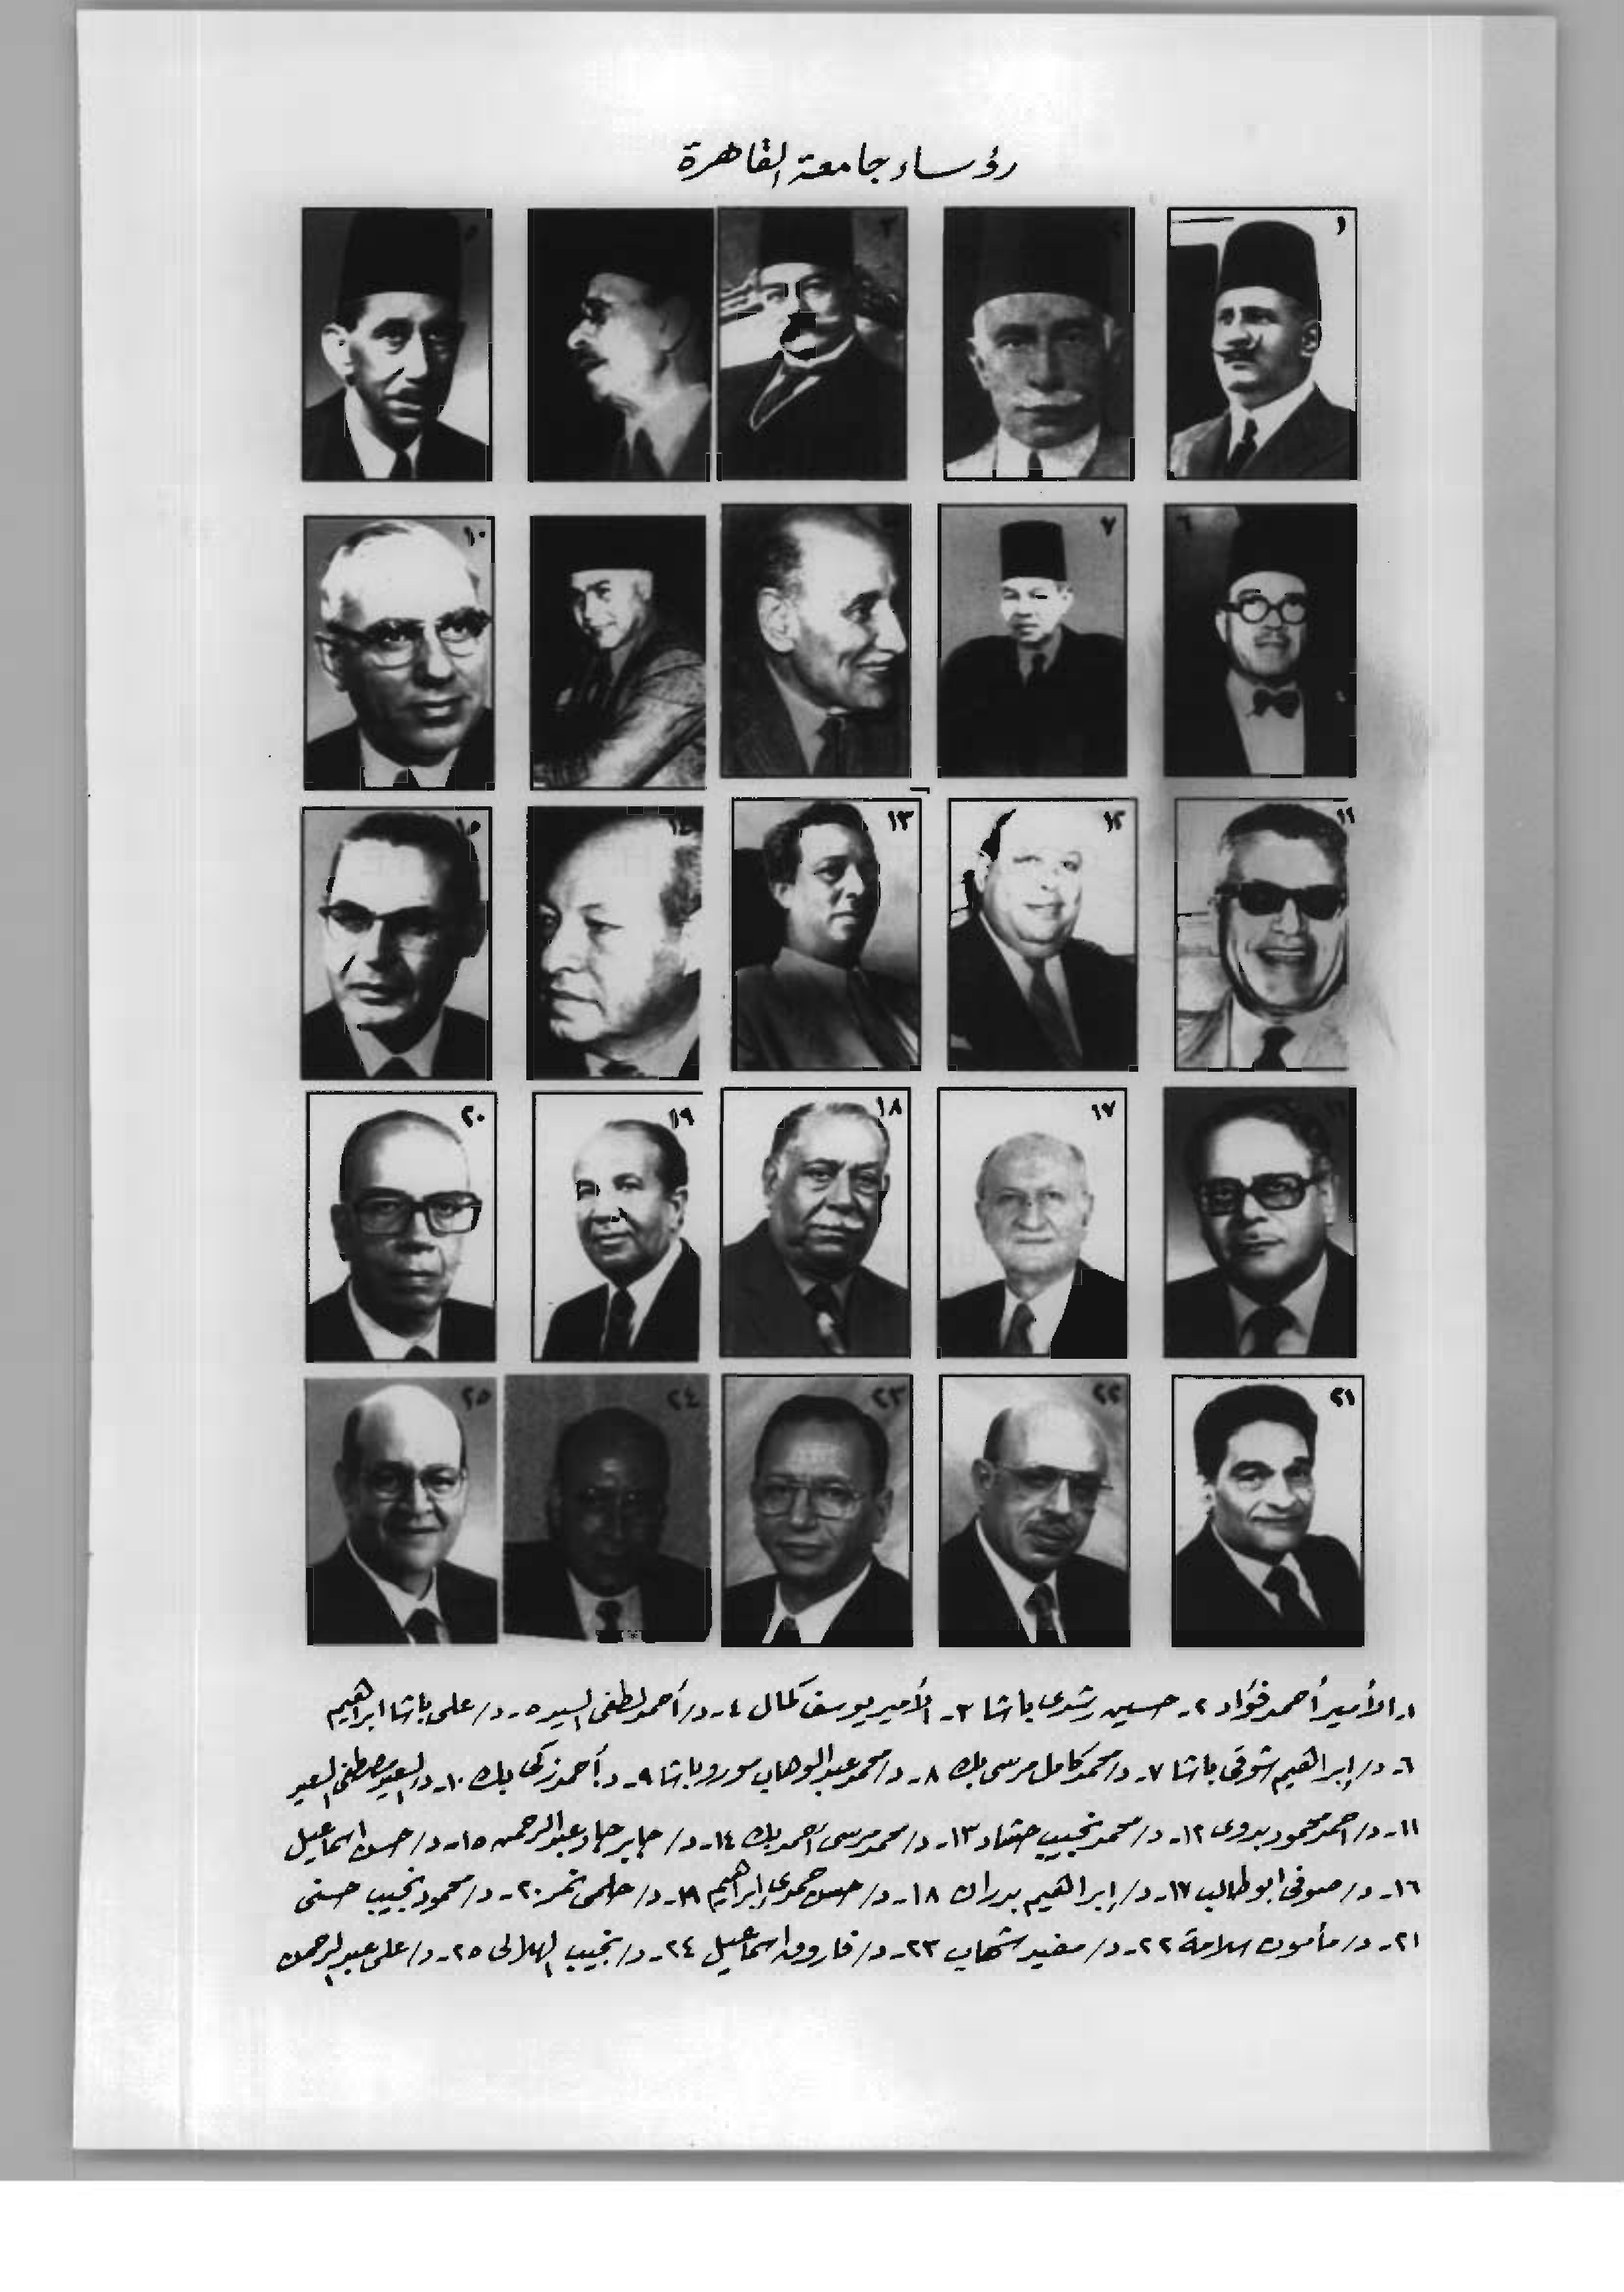 رؤساء جامعة القاهرة
١
٧
١٠
١١
١٢
١٣
١٥
١٧
١٨
١٩
٢٠
٢١
٢٢
٢٣
٢٤
٢٥
١- الأمير أحمد فؤاد ٢- حسين رشدى باشا ٣- الأمير يوسف كمال ٤- د/ أحمد لطفى السيد ٥- د/ على باشا ابراهيم
٦- د/ إبراهيم شوقى باشا ٧- د/ محمد كامل مرسى بك ٨- د/ محمد عبد الوهاب مورو باشا ٩- د/ أحمد زكى بك ١٠- د/ السعيد مصطفى السعيد
١١- د/ احمد محمود بدوى ١٢- د/ محمد نجيب حشاد ١٣- د/ محمد مرسى أحمد بك ١٤- د/ جابر جاد عبد الرحمن ١٥- د/ حسن اسماعيل
١٦- د/ صوفى ابو طالب ١٧- د/ إبراهيم بدران ١٨- د/ حسن حمدى إبراهيم ١٩- د/ حلمى نمر ٢٠- د/ محمود نجيب حسنى
٢١- د/ مأمون سلامة ٢٢- د/ مفيد شهاب ٢٣- د/ فاروق اسماعيل ٢٤- د/ نجيب الهلالى ٢٥- د/ على عبد الرحمن